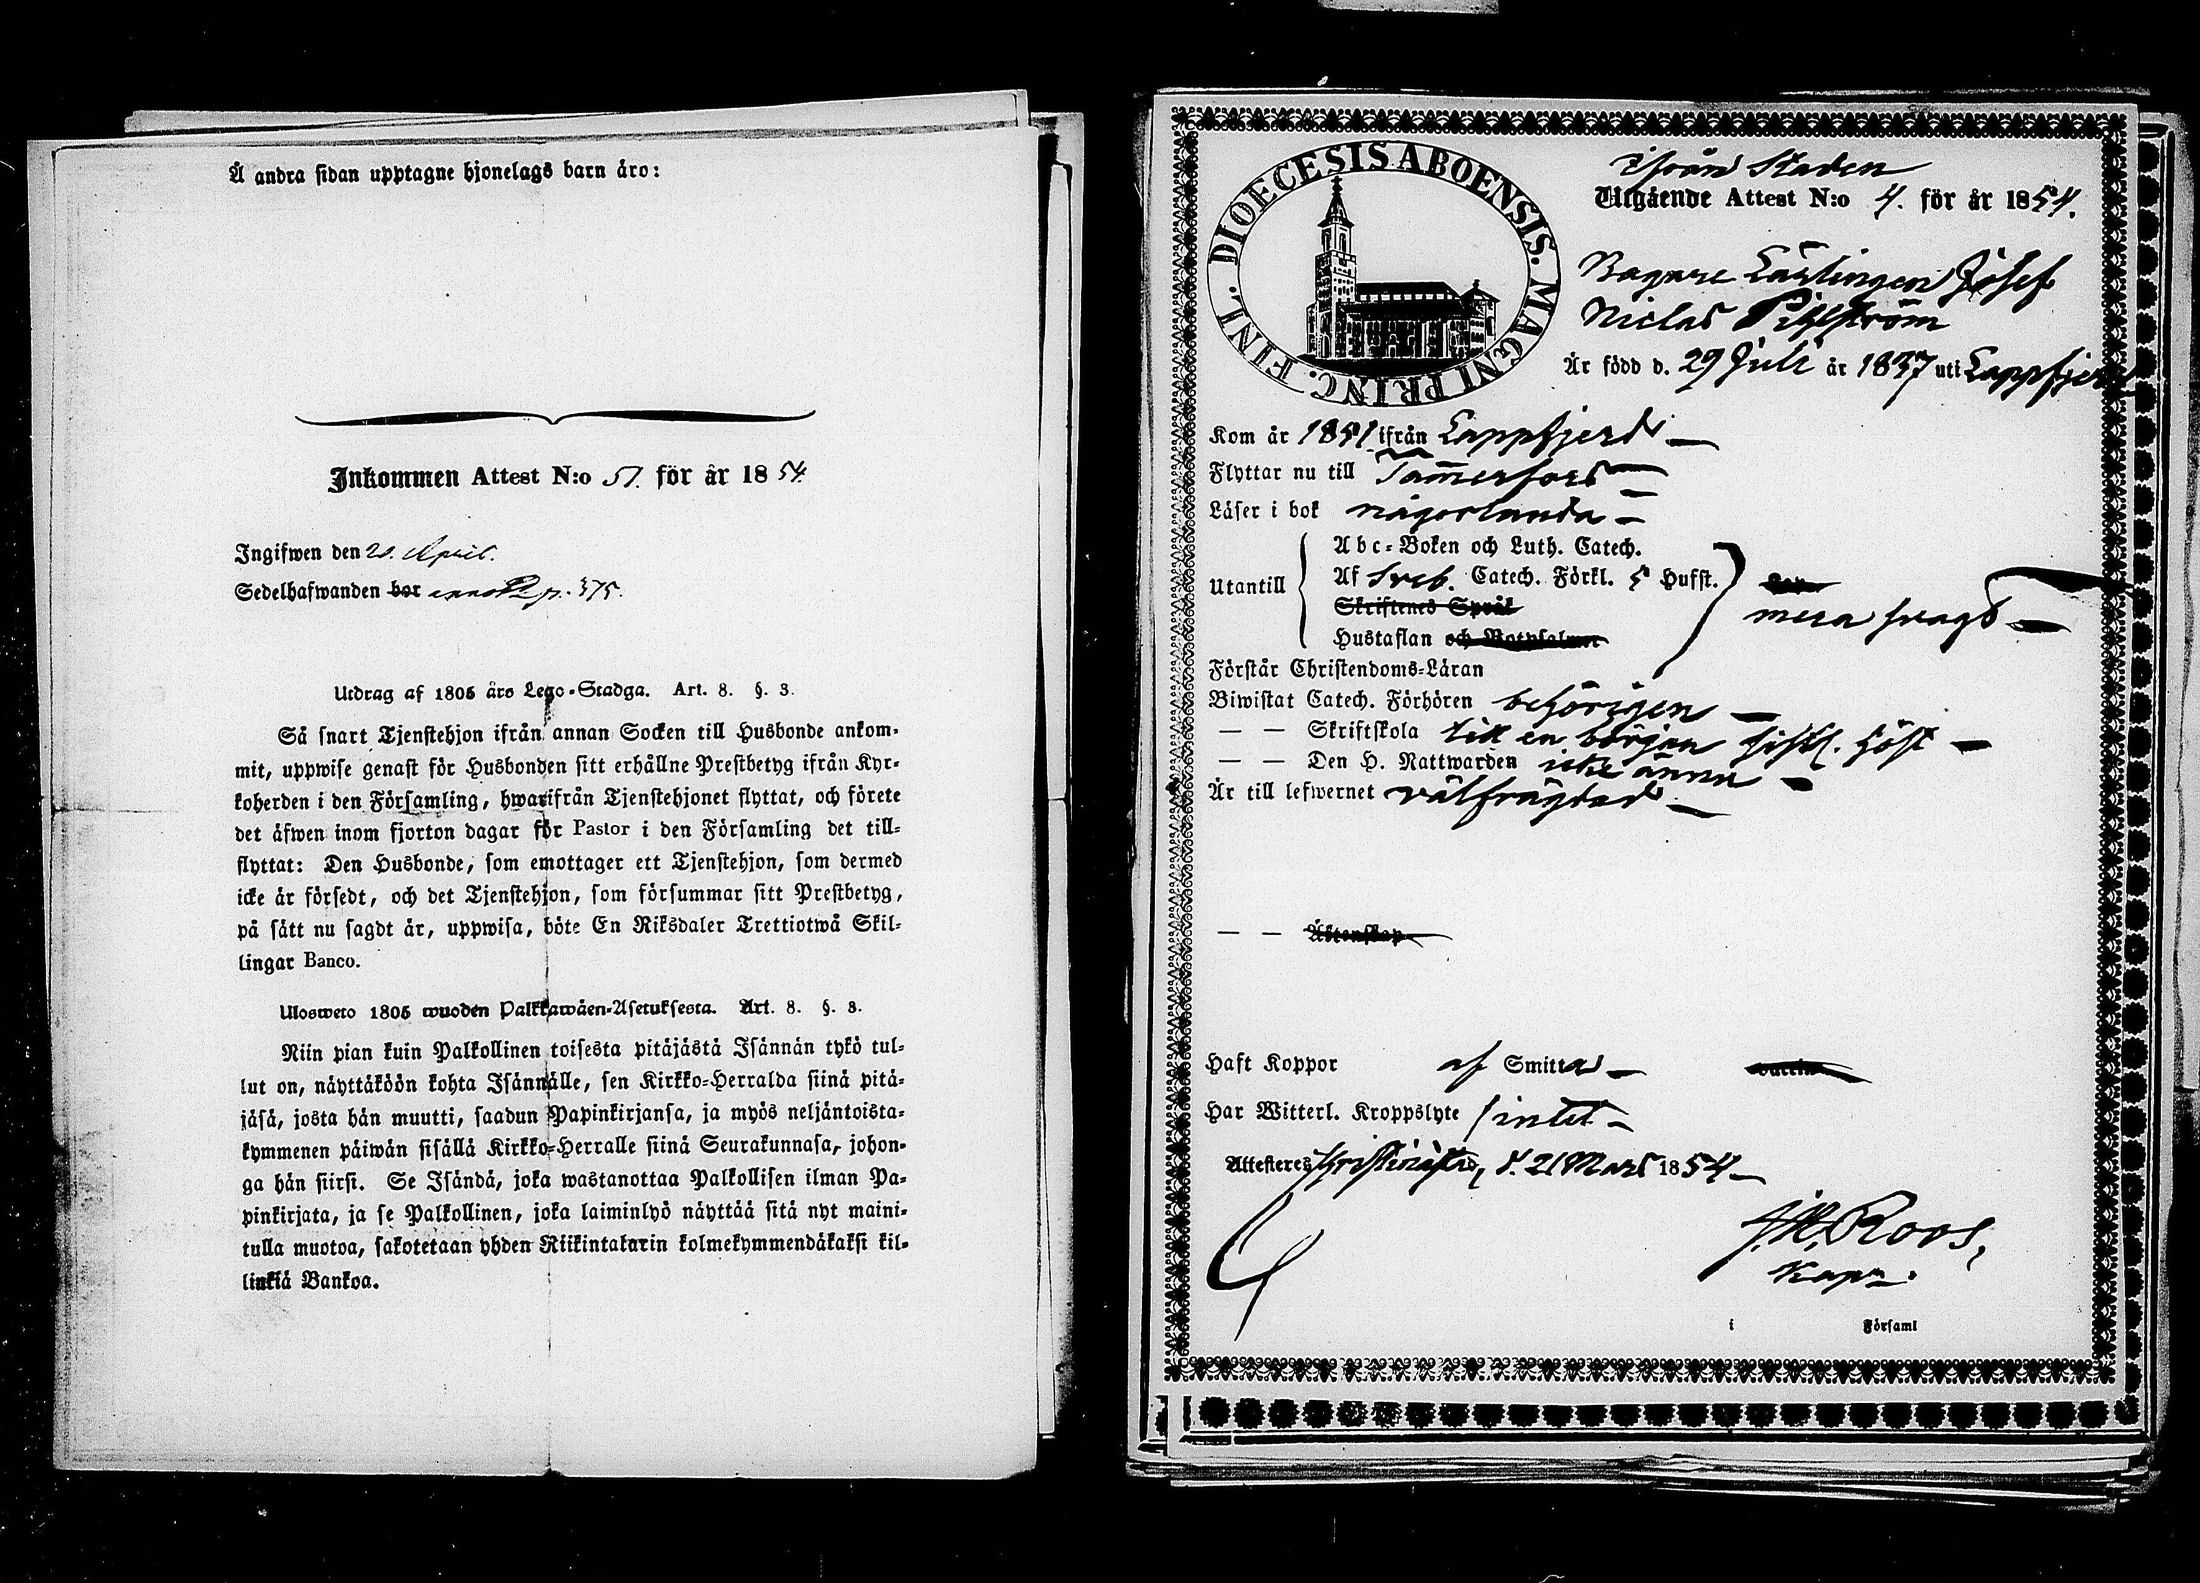 Å andra sidan upptagne hjonelags barn äro:
Inkommen Attest N:o 51. för år 1854.
Ingifwen den 20. April.
Sedelhafwanden bor p. 375.
Utdrag af 1805 års Lego-Stadga. Art. 8. §. 3.
Så snart Tjenstehjon ifrån annan Socken till Husbonde ankom-
mit, uppwise genast för Husbonden sitt erhållne Prestbetyg ifrån Kyr-
koherden i den Församling, hwarifrån Tjenstehjonet flyttat, och förete
det äfwen inom fjorton dagar för Pastor i den Församling det till-
flyttat: Den Husbonde, som emottager ett Tjenstehjon, som dermed
icke är försedt, och det Tjenstehjon, som försummar sitt Prestbetyg,
på sätt nu sagdt är, uppwisa, böte En Riksdaler Trettiotwå Skil-
lingar Banco.
Ulosweto 1805 wuoden Palkkawäen-Asetuksesta. Art. 8. §. 3.
Niin pian kuin Palkollinen toisesta pitäjästä Isännän tykö tul-
lut on, näyttäköön kohta Isännälle, sen Kirkko-Herralda siinä pitä-
jäsä, josta hän muutti, saadun Papinkirjansa, ja myös neljäntoista-
kymmenen päiwän sisällä Kirkko-Herralle siinä Seurakunnasa, johon-
ga hän siirsi. Se Isändä, joka wastanottaa Palkollisen ilman Pa-
pinkirjata, ja se Palkollinen, joka laiminlyö näyttää sitä nyt maini-
tulla muotoa, sakotetaan yhden Riikintalarin kolmekymmendäkaksi kil-
linkiä Bankoa.
DIOECESIS ABOENSIS. MAGNI PRINC. FINL.
ifrån Staden
Utgående Attest N:o 4. för år 1854.
Bagare Lärlingen Josef
Niclas Pihlström
Är född d. 29 Juli år 1837 uti Lappfjerd
Kom år 1851 ifrån Lappfjerd
Flyttar nu till Tammerfors
Läser i bok någorlunda
Utantill
Abc-Boken och Luth. Catech.
Af Sveb. Catech. Förkl. 5 Hufst.
Skriftenes Språk
Hustaflan och Botpsalmer
mera svagt
Förstår Christendoms-Läran
Biwistat Catech. Förhören behörigen
— — Skriftskola till en början sistl. höst
— — Den H. Nattwarden icke ännu
Är till lefwernet välfrägdad
— — Äktenskap
Haft Koppor af Smitta
Har Witterl. Kroppslyte intet
Attesteres Christinestad, d. 21 Mars 1854
Roos,
Kapn.
i Församl